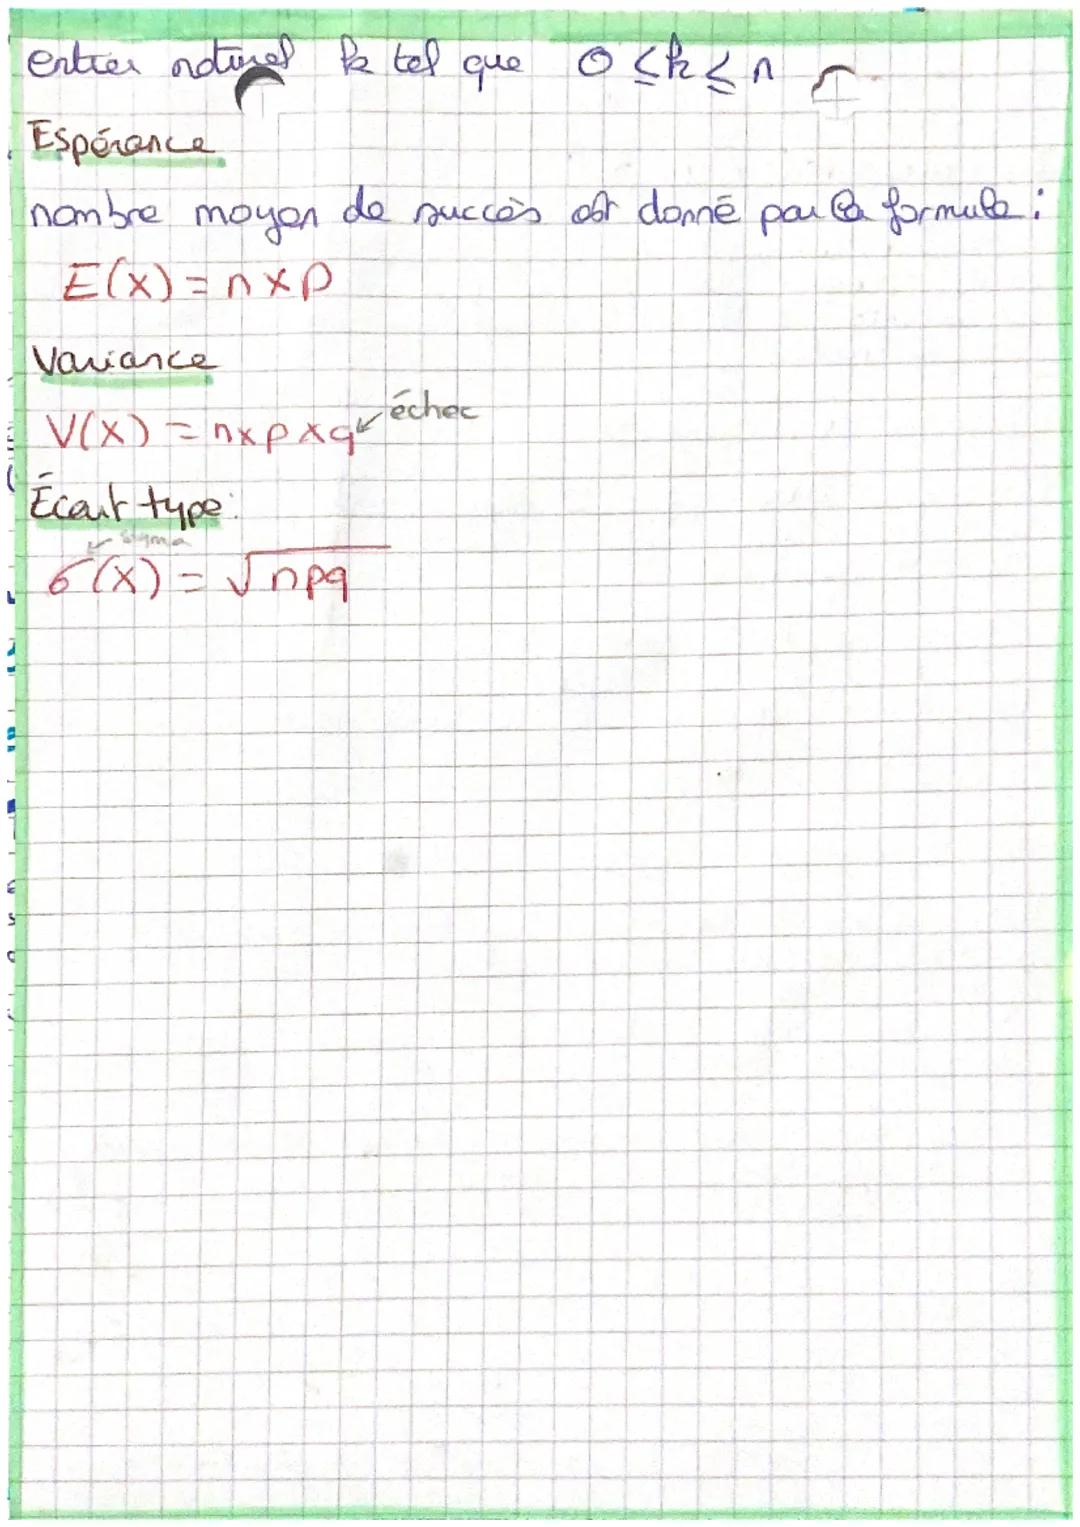 entier naturel k tel que 0 ≤ k ≤ n
Espérance
nombre moyen de succès est donné par la formule :
E(X) = n x p
Variance
V(X) = n x p x q ↙ échec
Écart type :
↙ sigma
σ(X) = √npq